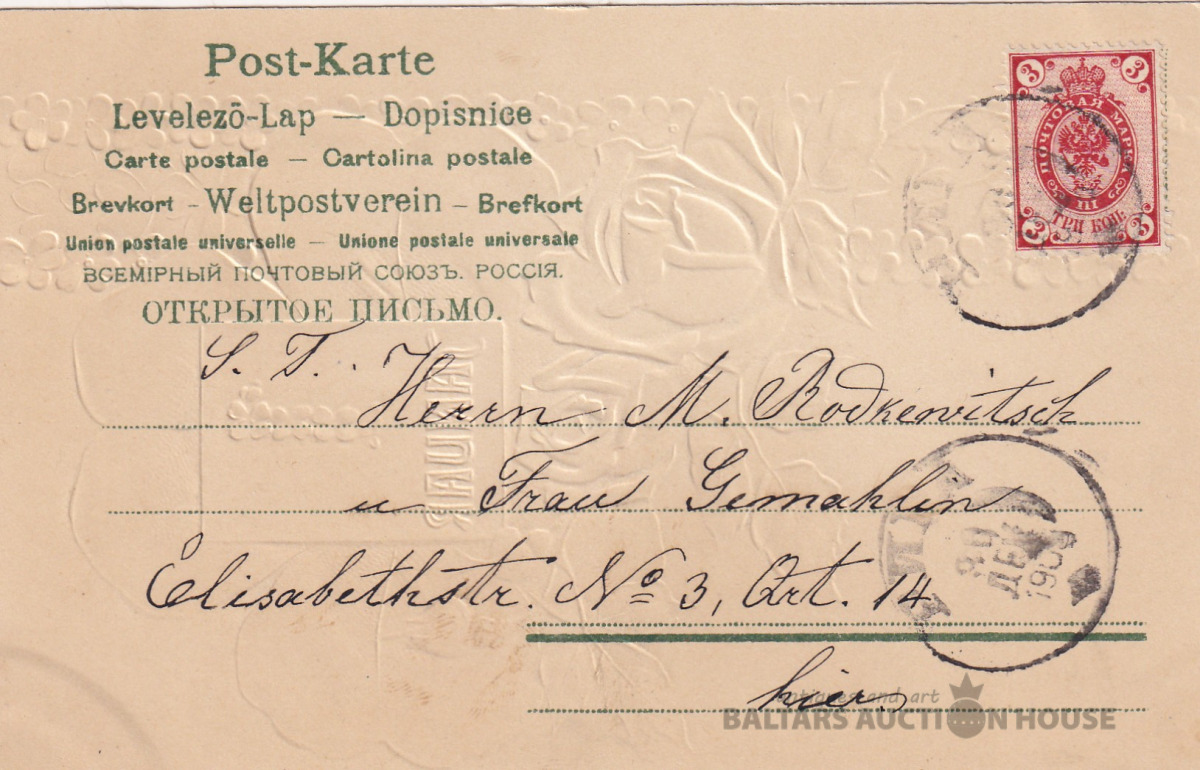 Post-Karte
Levelezö-Lap — Dopisnice
Carte postale — Cartolina postale
Brevkort – Weltpostverein – Brefkort
Union postale universelle — Unione postale universale
ВСЕМІРНЫЙ ПОЧТОВЫЙ СОЮЗЪ. РОССІЯ.
ОТКРЫТОЕ ПИСЬМО.
3 3
ПОЧТОВАЯ МАРКА
III
ТРИ КОП.
3 3
S. T. Herrn M. Rodkewitsch
u Frau Gemahlin
Elisabethstr. No 3, Qrt. 14
hier.
ДЕК
antiques and art
BALTARS AUCTION HOUSE